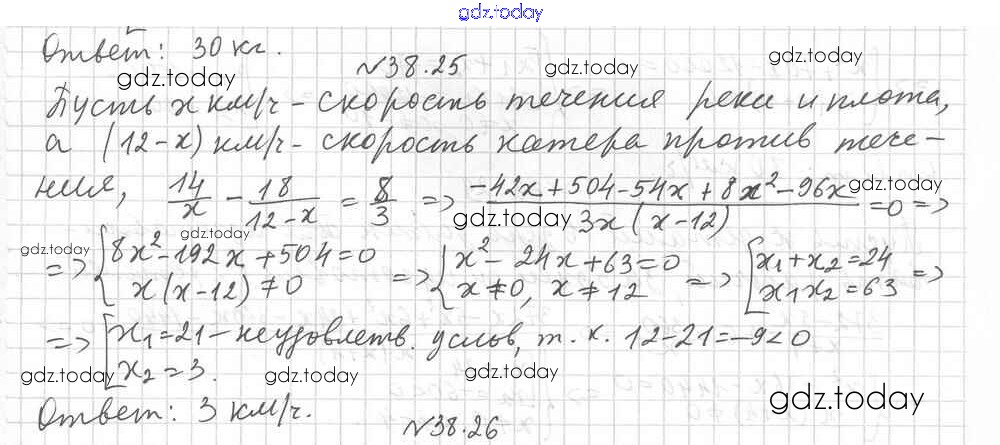 gdz.today
Ответ: 30 кг.
gdz.today
gdz.today
gdz.today
№38.25
Пусть x км/ч - скорость течения реки и плота,
а (12-x) км/ч - скорость катера против тече-
ния, 14/x - 18/(12-x) = 8/3 => (-42x+504-54x+8x²-96x)/(3x(x-12)) = 0 =>
gdz.today
gdz.today
gdz.today
gdz.today
=> { 8x²-192x+504=0 => { x²-24x+63=0 => [ x₁+x₂=24 =>
x(x-12)≠0 x≠0, x≠12 x₁x₂=63
=> [ x₁=21 - неудовлетв. услов, т. к. 12-21=-9<0
x₂=3.
gdz.today
gdz.today
gdz.today
gdz.today
Ответ: 3 км/ч.
gdz.today
№38.26